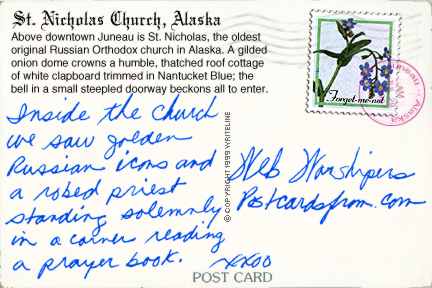 St. Nicholas Church, Alaska
Above downtown Juneau is St. Nicholas, the oldest
original Russian Orthodox church in Alaska. A gilded
onion dome crowns a humble, thatched roof cottage
of white clapboard trimmed in Nantucket Blue; the
bell in a small steepled doorway beckons all to enter.
Inside the church
we saw golden
Russian icons and
a robed priest
standing solemnly
in a corner reading
a prayer book. xxoo
© COPYRIGHT 1999 WRITELINE
Forget-me-not
Juneau Alaska
Web Worshipers
Postcardsfrom.com
POST CARD